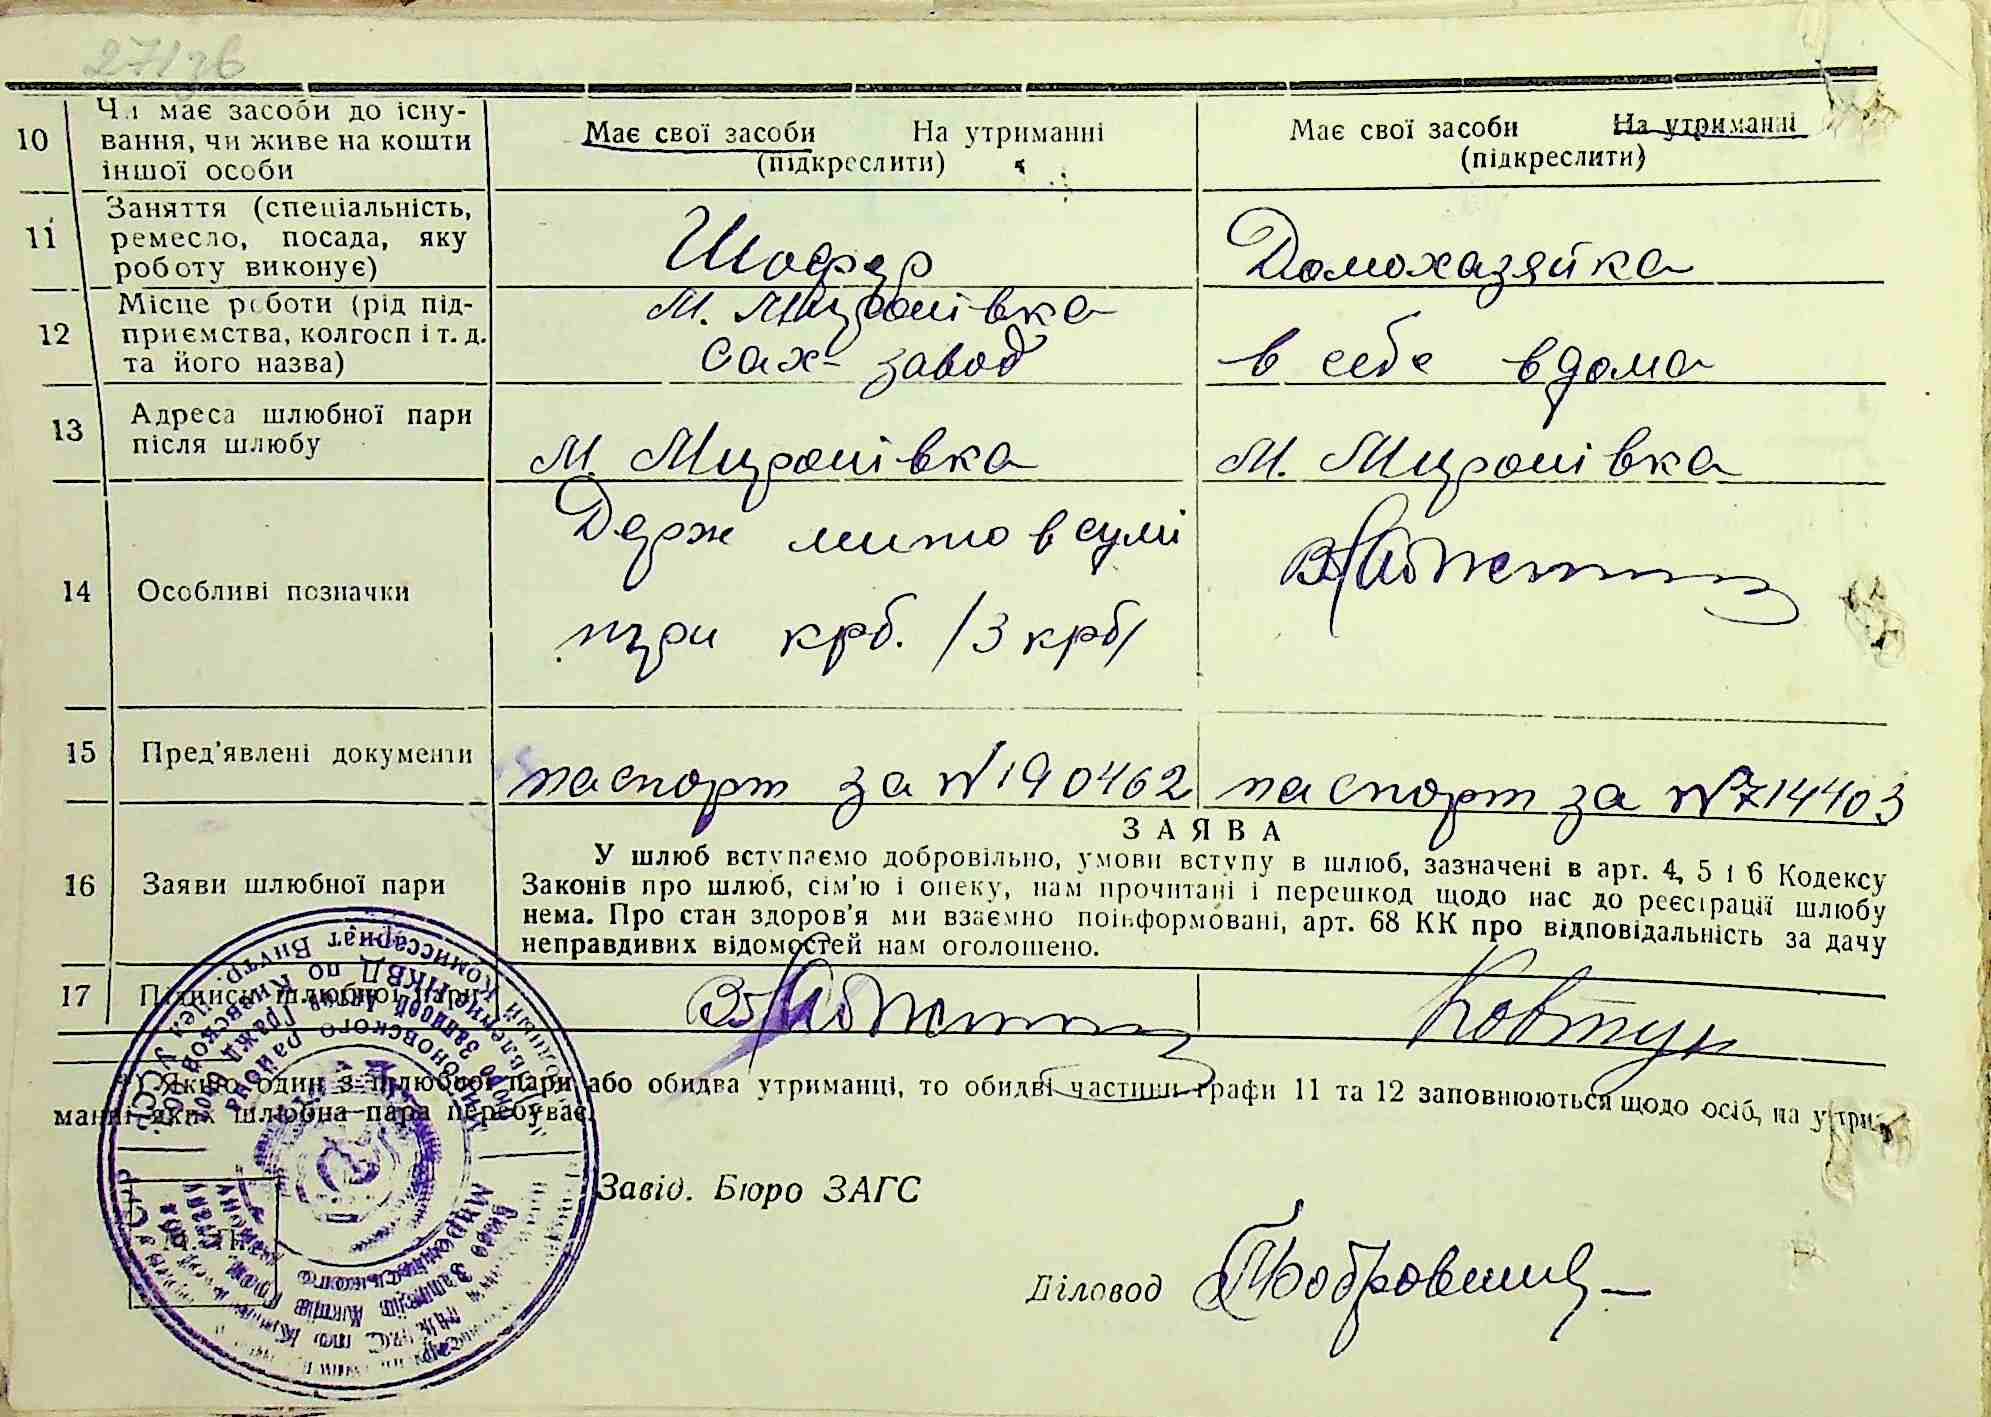 271зв
10
Чи має засоби до існу-
вання, чи живе на кошти
іншої особи
Має свої засоби На утриманні
(підкреслити)
Має свої засоби На утриманні
(підкреслити)
11
Заняття (спеціальність,
ремесло, посада, яку
роботу виконує)
Шофер
Домохазяйка
12
Місце роботи (рід під-
приємства, колгосп і т. д.
та його назва)
М. Миронівка
Сах-завод
в себе вдома
13
Адреса шлюбної пари
після шлюбу
М. Миронівка
М. Миронівка
14
Особливі позначки
Держ мито в сумі
три крб. /3 крб/
15
Пред'явлені документи
паспорт за №190462
паспорт за №714403
16
Заяви шлюбної пари
ЗАЯВА
У шлюб вступаємо добровільно, умови вступу в шлюб, зазначені в арт. 4, 5 і 6 Кодексу
Законів про шлюб, сім'ю і опеку, нам прочитані і перешкод щодо нас до реєстрації шлюбу
нема. Про стан здоров'я ми взаємно поінформовані, арт. 68 КК про відповідальність за дачу
неправдивих відомостей нам оголошено.
17
Підписи шлюбної пари
Ковтун
*) Якщо один з шлюбної пари або обидва утриманці, то обидві частини графи 11 та 12 заповнюються щодо осіб, на утри-
манні яких шлюбна пара перебуває.
Завід. Бюро ЗАГС
М. П.
Діловод